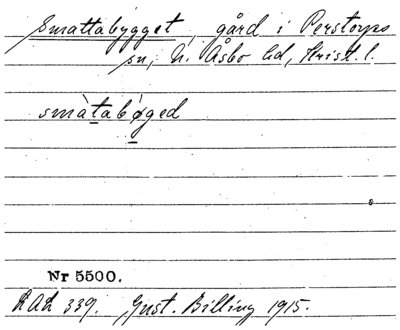 Smattabygget, gård i Perstorps
sn, N. Åsbo hd, Krist. l.
smàtabǿged
Nr 5500.
LAL 339. Gust. Billing 1915.